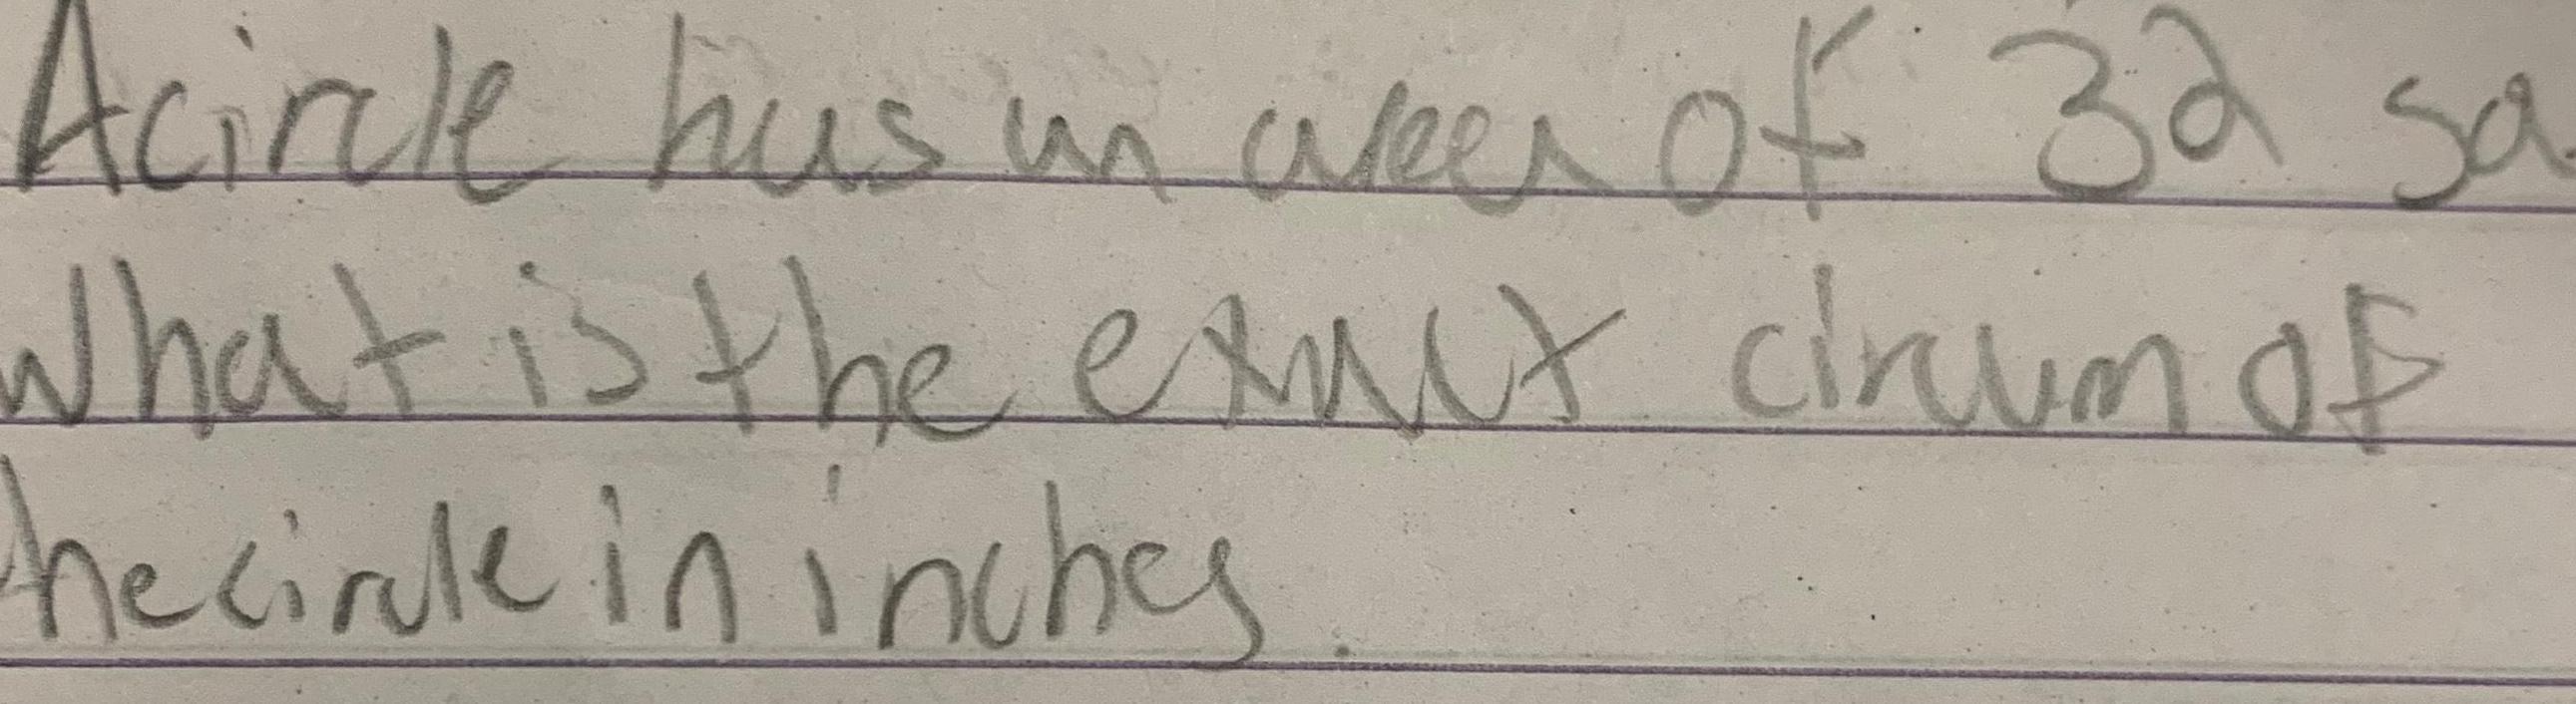 A circle has an area of 32 sq.
What is the exact circum of
the circle in inches.